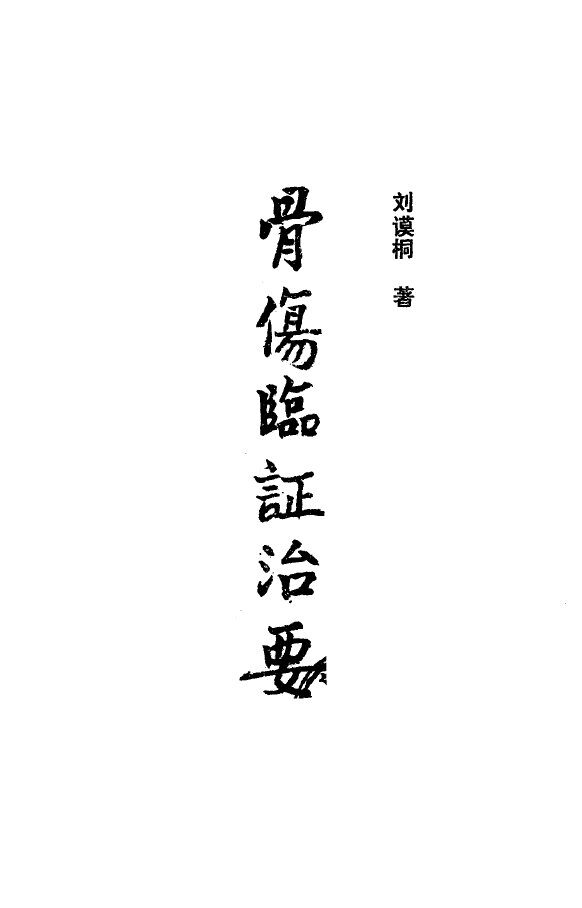 刘谟桐 著
骨傷臨証治要